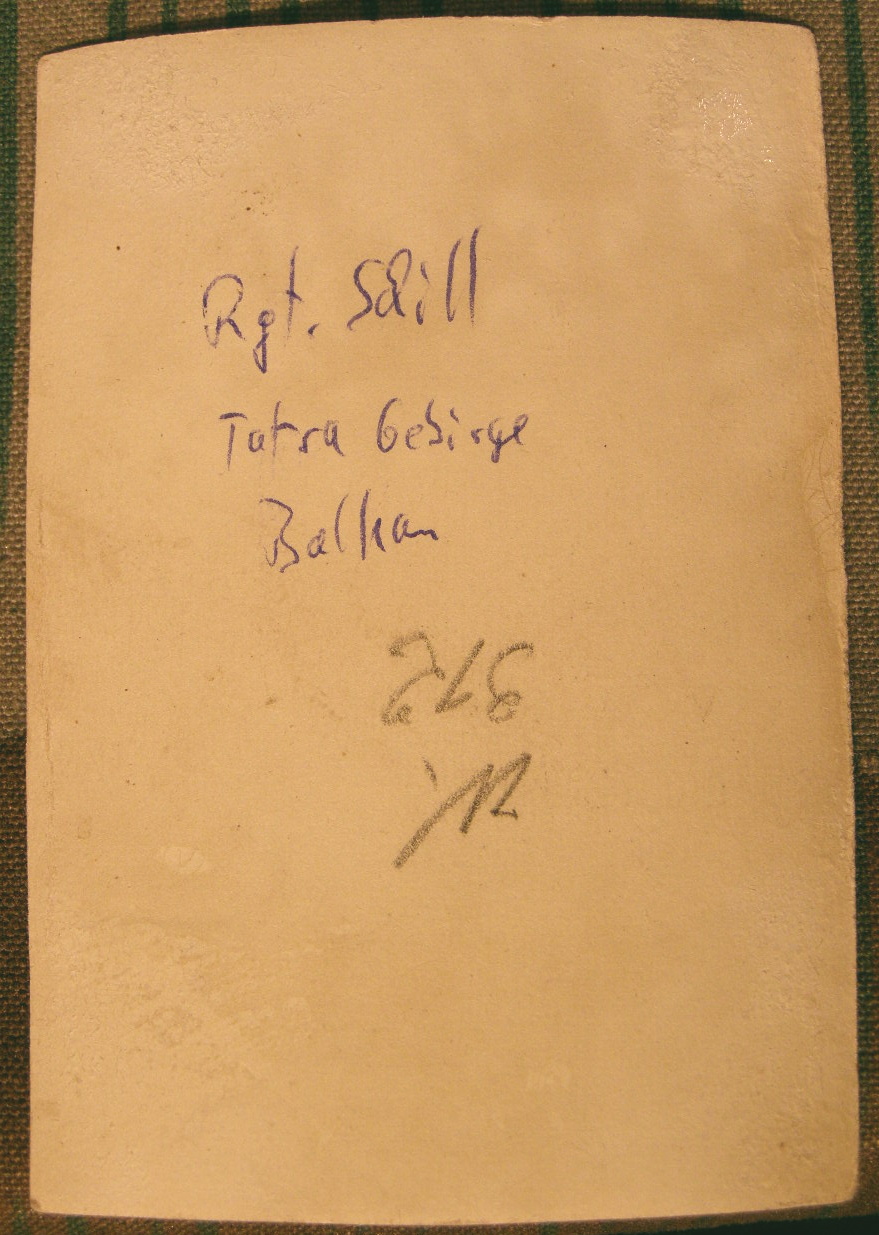 Rgt. Schill
Tatra Gebirge
Balkan